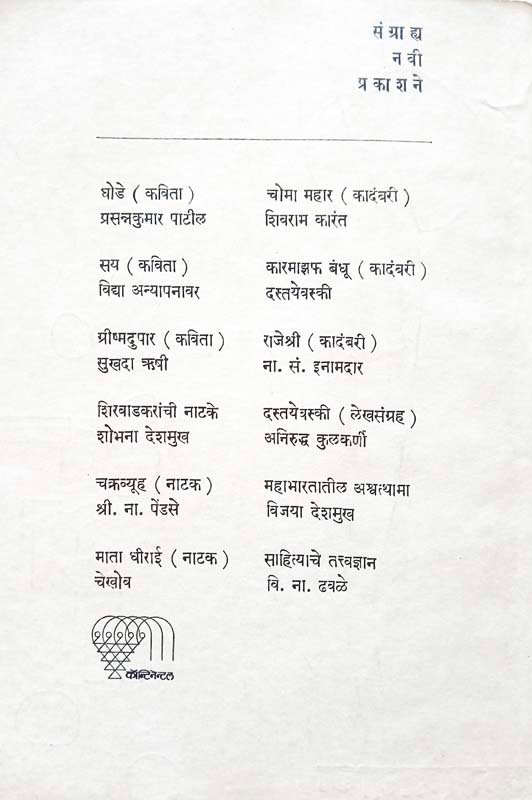 संग्राह्य
नवी
प्रकाशने
घोडे ( कविता )
प्रसन्नकुमार पाटील
सय ( कविता )
विद्या अन्यापनावर
ग्रीष्मदुपार ( कविता )
सुखदा ऋषी
शिरवाडकरांची नाटके
शोभना देशमुख
चक्रव्यूह ( नाटक )
श्री. ना. पेंडसे
माता धीराई ( नाटक )
चेखोव
चोमा महार ( कादंबरी )
शिवराम कारंत
कारमाझफ बंधू ( कादंबरी )
दस्तयेवस्की
राजेश्री ( कादंबरी )
ना. सं. इनामदार
दस्तयेवस्की ( लेखसंग्रह )
अनिरुद्ध कुलकर्णी
महाभारतातील अश्वत्थामा
विजया देशमुख
साहित्याचे तत्त्वज्ञान
वि. ना. ढवळे
कॉन्टिनेन्टल